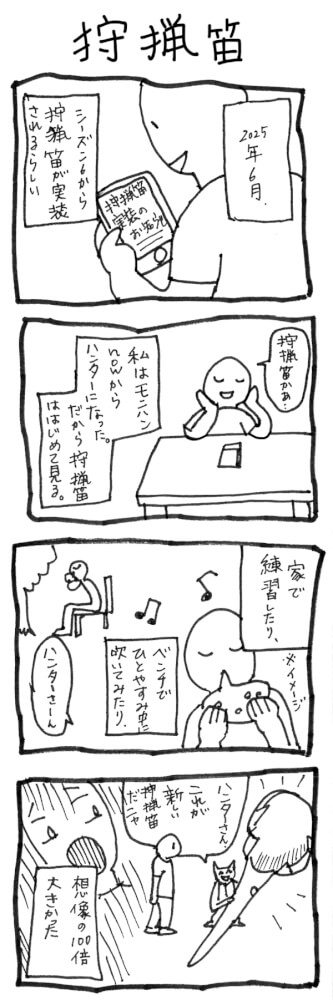 狩猟笛
2025年6月、
シーズン6から
狩猟笛が実装
されるらしい
狩猟笛
実装の
お知らせ
狩猟笛かぁ…
私はモンハン
nowから
ハンターになった。
だから狩猟笛
ははじめて見る。
家で
練習したり、
※イメージ
ベンチで
ひとやすみ中に
吹いてみたり、
ハンターさーん
ハンターさん、
これが
新しい
狩猟笛
だニャ
想像の100倍
大きかった